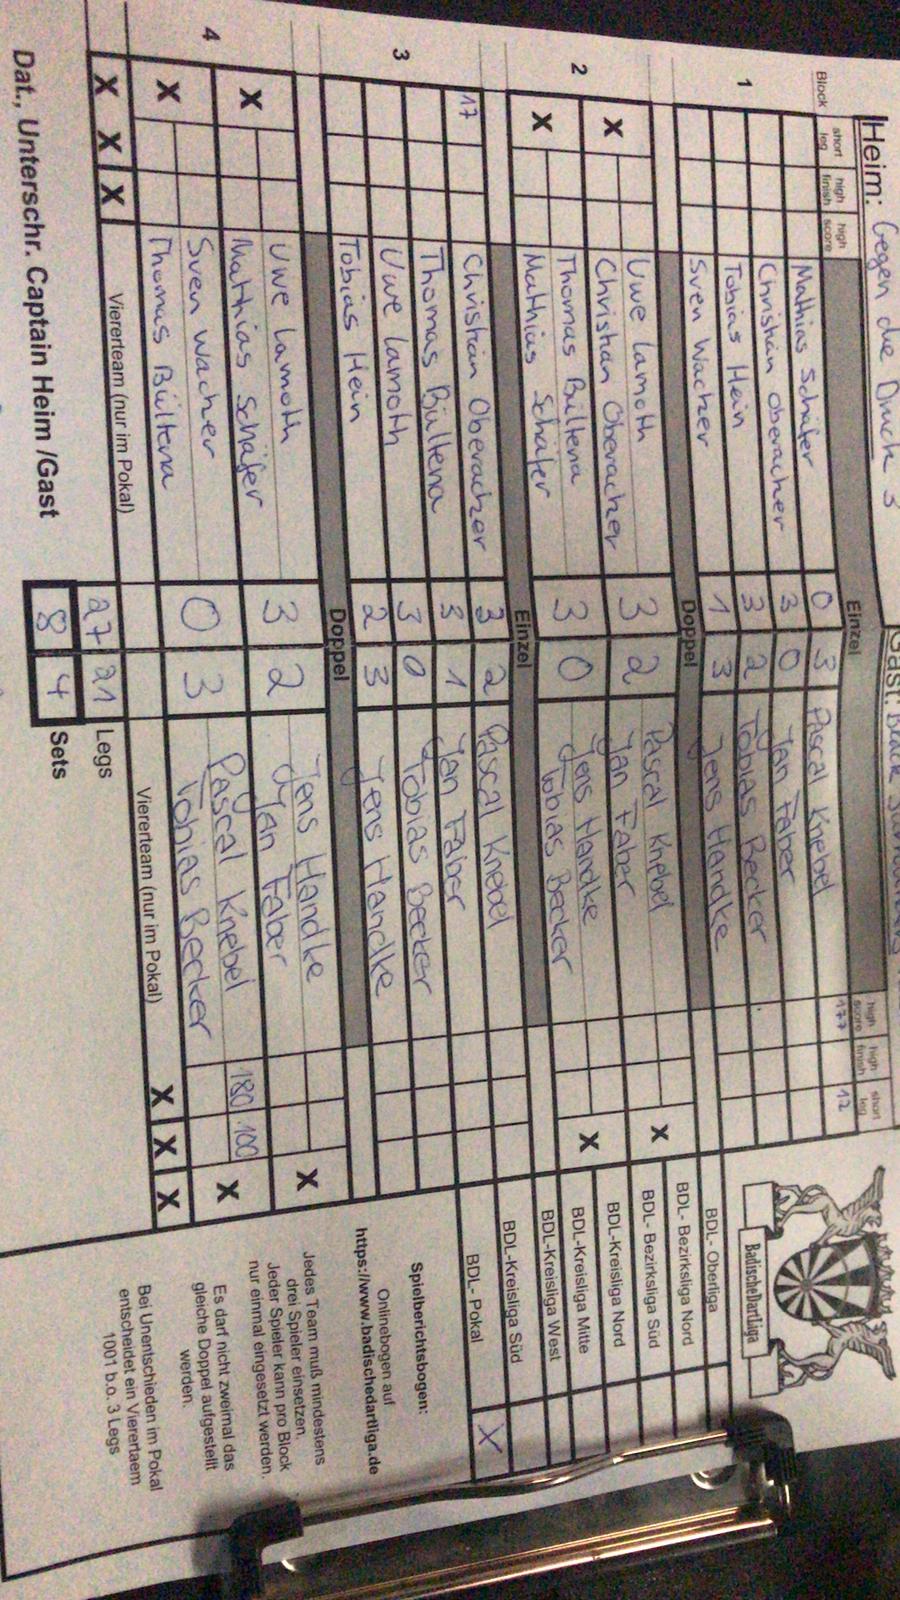 Heim: Gegen die Druck 3
Gast: Black
Block short leg high finish high score Einzel high score high finish short leg
1 Mathias Schäfer 0 3 Pascal Knebel 177 12
Christian Oberacher 3 0 Jan Faber
Tobias Hein 3 2 Tobias Becker
Sven Wacher 1 3 Jens Handke
Doppel
2 X Uwe Lamoth 3 2 Pascal Knebel X
Christian Oberacher Jan Faber
X Thomas Bültena 3 0 Jens Handke X
Mathias Schäfer Tobias Becker
Einzel
3 17 Christian Oberacher 3 2 Pascal Knebel
Thomas Bültena 3 1 Jan Faber
Uwe Lamoth 3 0 Tobias Becker
Tobias Hein 2 3 Jens Handke
Doppel
4 X Uwe Lamoth 3 2 Jens Handke X
Mathias Schäfer Jan Faber
X Sven Wacher 0 3 Pascal Knebel 180 100 X
Thomas Bültena Tobias Becker
X X X Viererteam (nur im Pokal) Viererteam (nur im Pokal) X X X
27 21 Legs
8 4 Sets
Dat., Unterschr. Captain Heim /Gast
BadischeDartLiga
BDL- Oberliga
BDL- Bezirksliga Nord
BDL- Bezirksliga Süd
BDL-Kreisliga Nord
BDL-Kreisliga Mitte
BDL-Kreisliga West
BDL-Kreisliga Süd
BDL- Pokal X
Spielberichtsbogen:
Onlinebogen auf
https://www.badischedartliga.de
Jedes Team muß mindestens
drei Spieler einsetzen.
Jeder Spieler kann pro Block
nur einmal eingesetzt werden.
Es darf nicht zweimal das
gleiche Doppel aufgestellt
werden.
Bei Unentschieden im Pokal
entscheidet ein Viererteaem
1001 b.o. 3 Legs